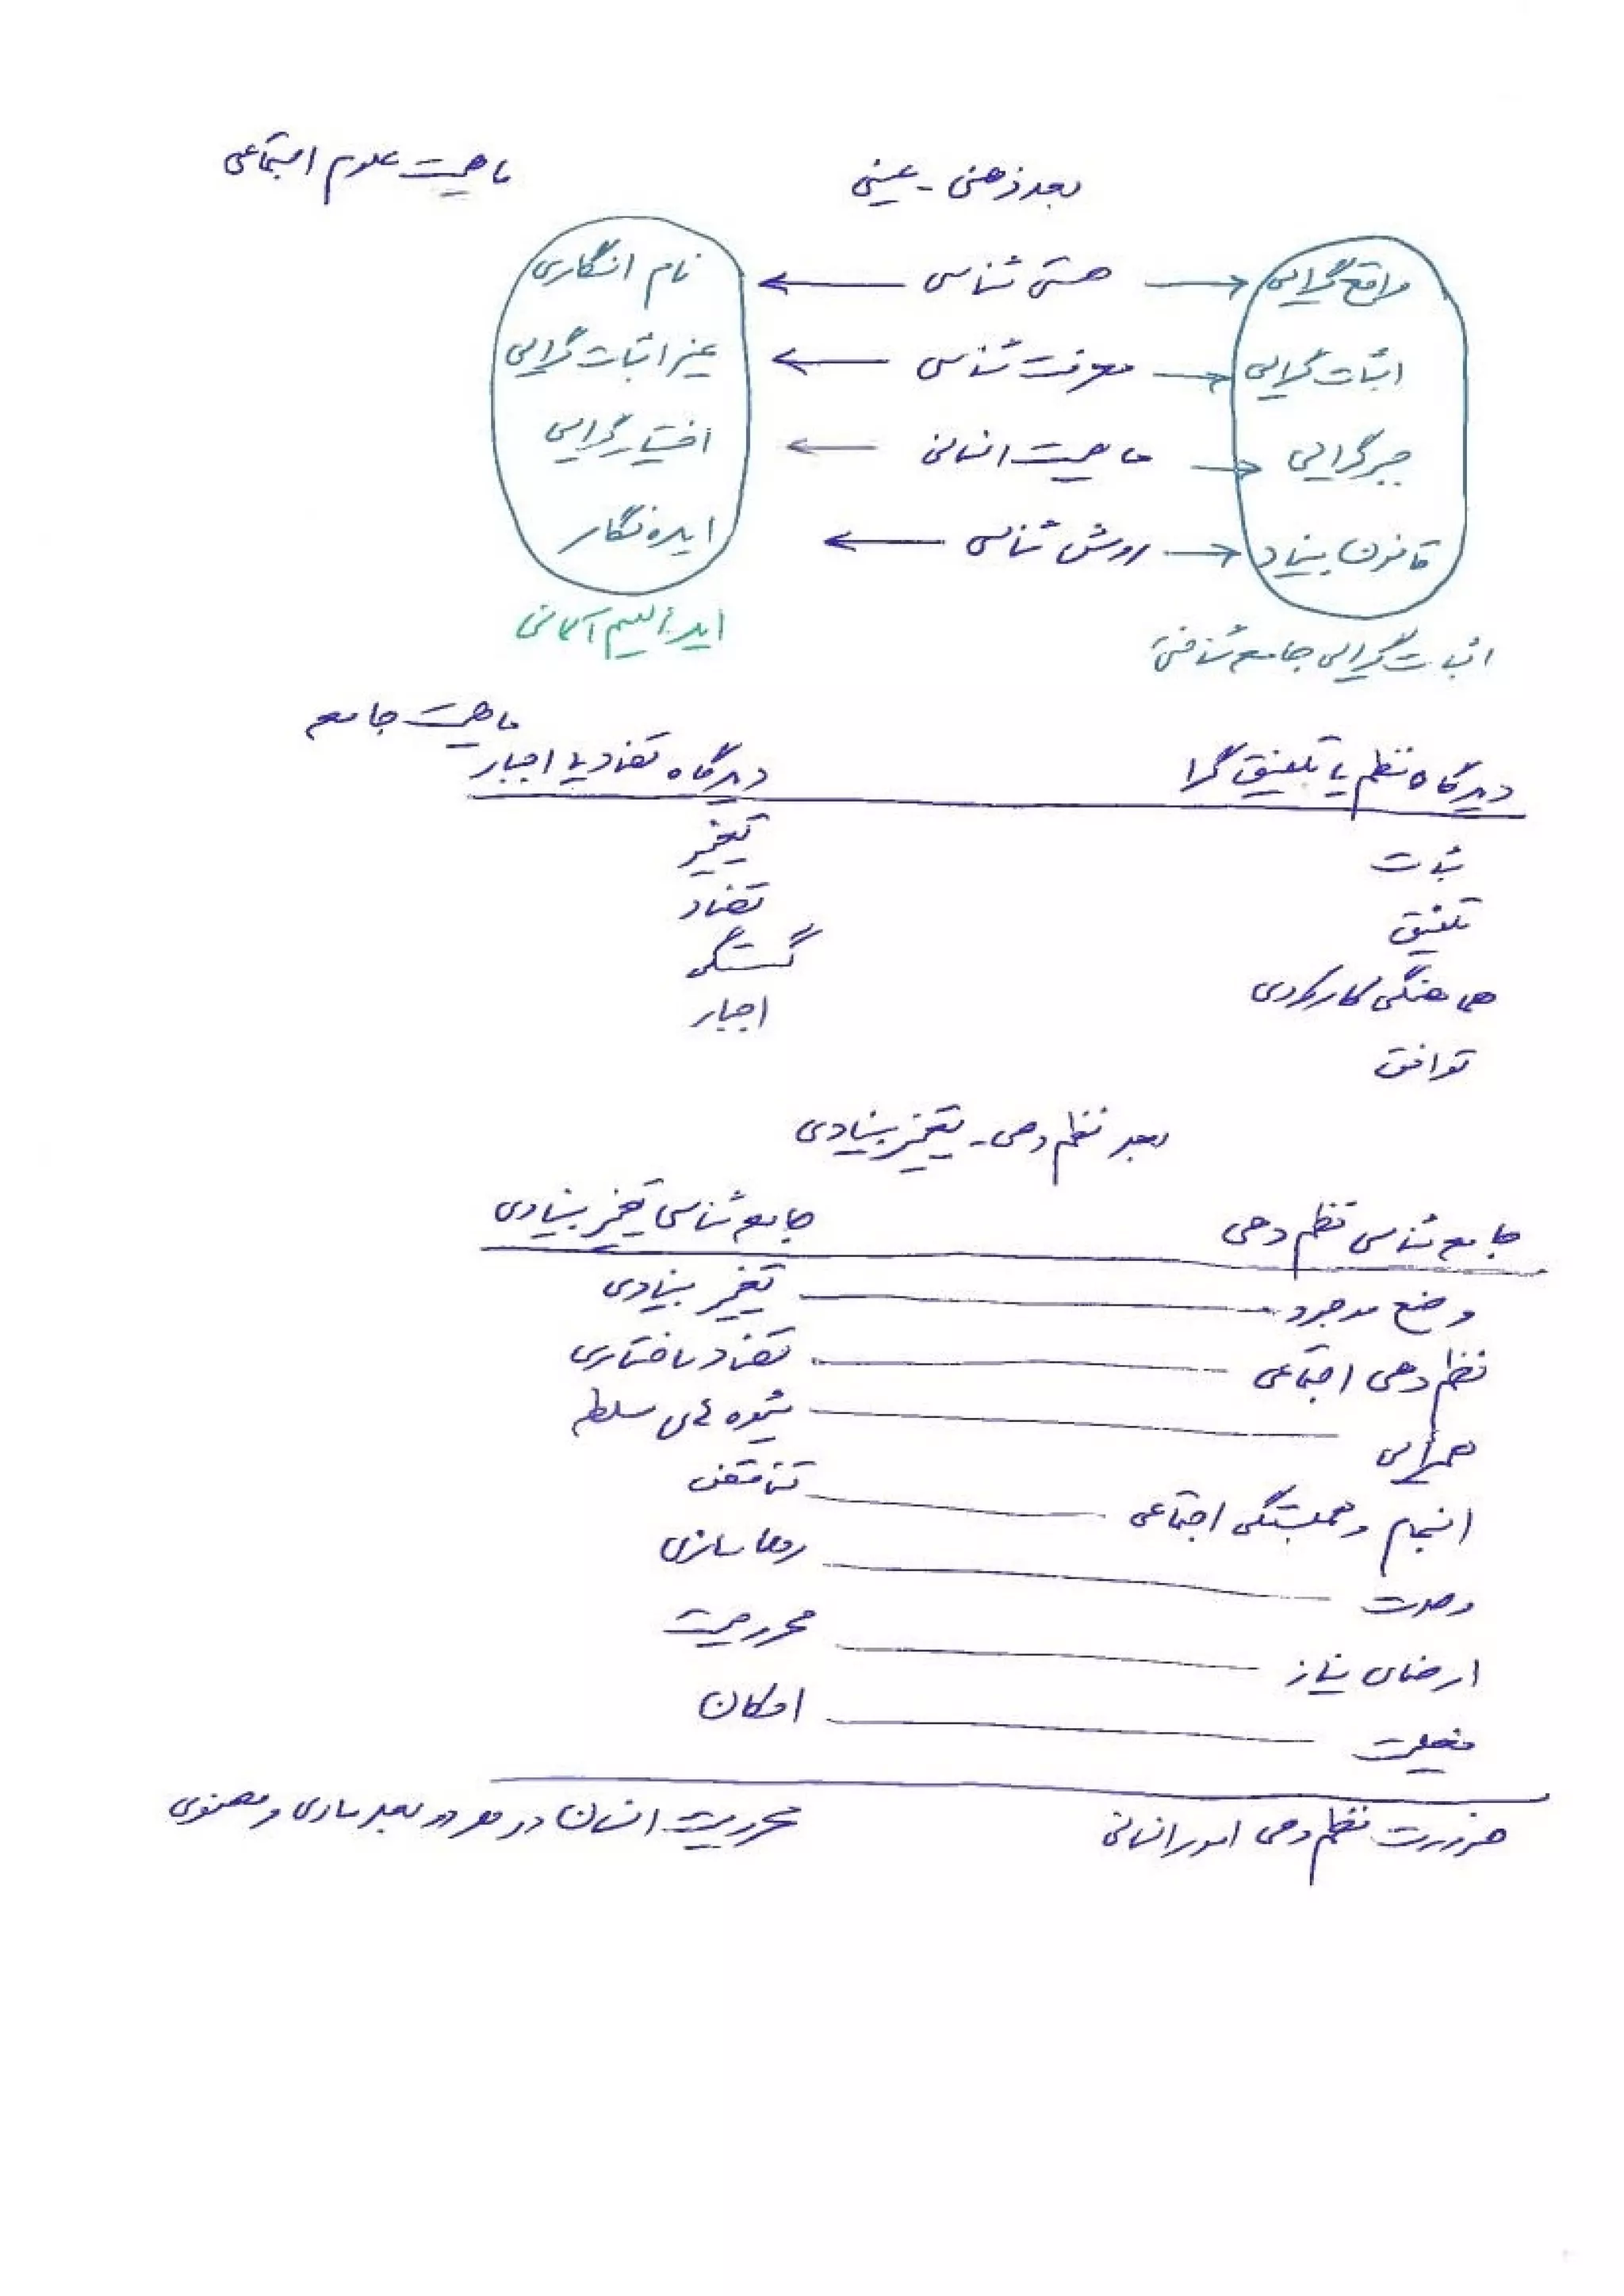 ماهیت علوم اجتماعی
بعد ذهنی - عینی
واقع گرایی → هستی شناسی ← نام انگاری
اثبات گرایی → معرفت شناسی ← غیر اثبات گرایی
جبرگرایی → ماهیت انسانی ← اختیارگرایی
قانون بنیاد → روش شناسی ← ایده نگار
اثبات گرایی جامعه شناختی ایدئالیسم آلمانی
ماهیت جامعه
دیدگاه نظم یا تلفیق گرا دیدگاه تضاد یا اجبار
ثبات تغییر
تلفیق تضاد
هماهنگی کارکردی گسستگی
توافق اجبار
بعد نظم دهی - تغییر بنیادی
جامعه شناسی نظم دهی جامعه شناسی تغییر بنیادی
وضع موجود — تغییر بنیادی
نظم دهی اجتماعی — تضاد ساختاری
همرأیی — شیوه های سلطه
انسجام و همبستگی اجتماعی — تناقض
وحدت — رهاسازی
ارضای نیاز — محرومیت
فعلیت — امکان
ضرورت نظم دهی امور انسانی محرومیت انسان در هر دو بعد مادی و معنوی